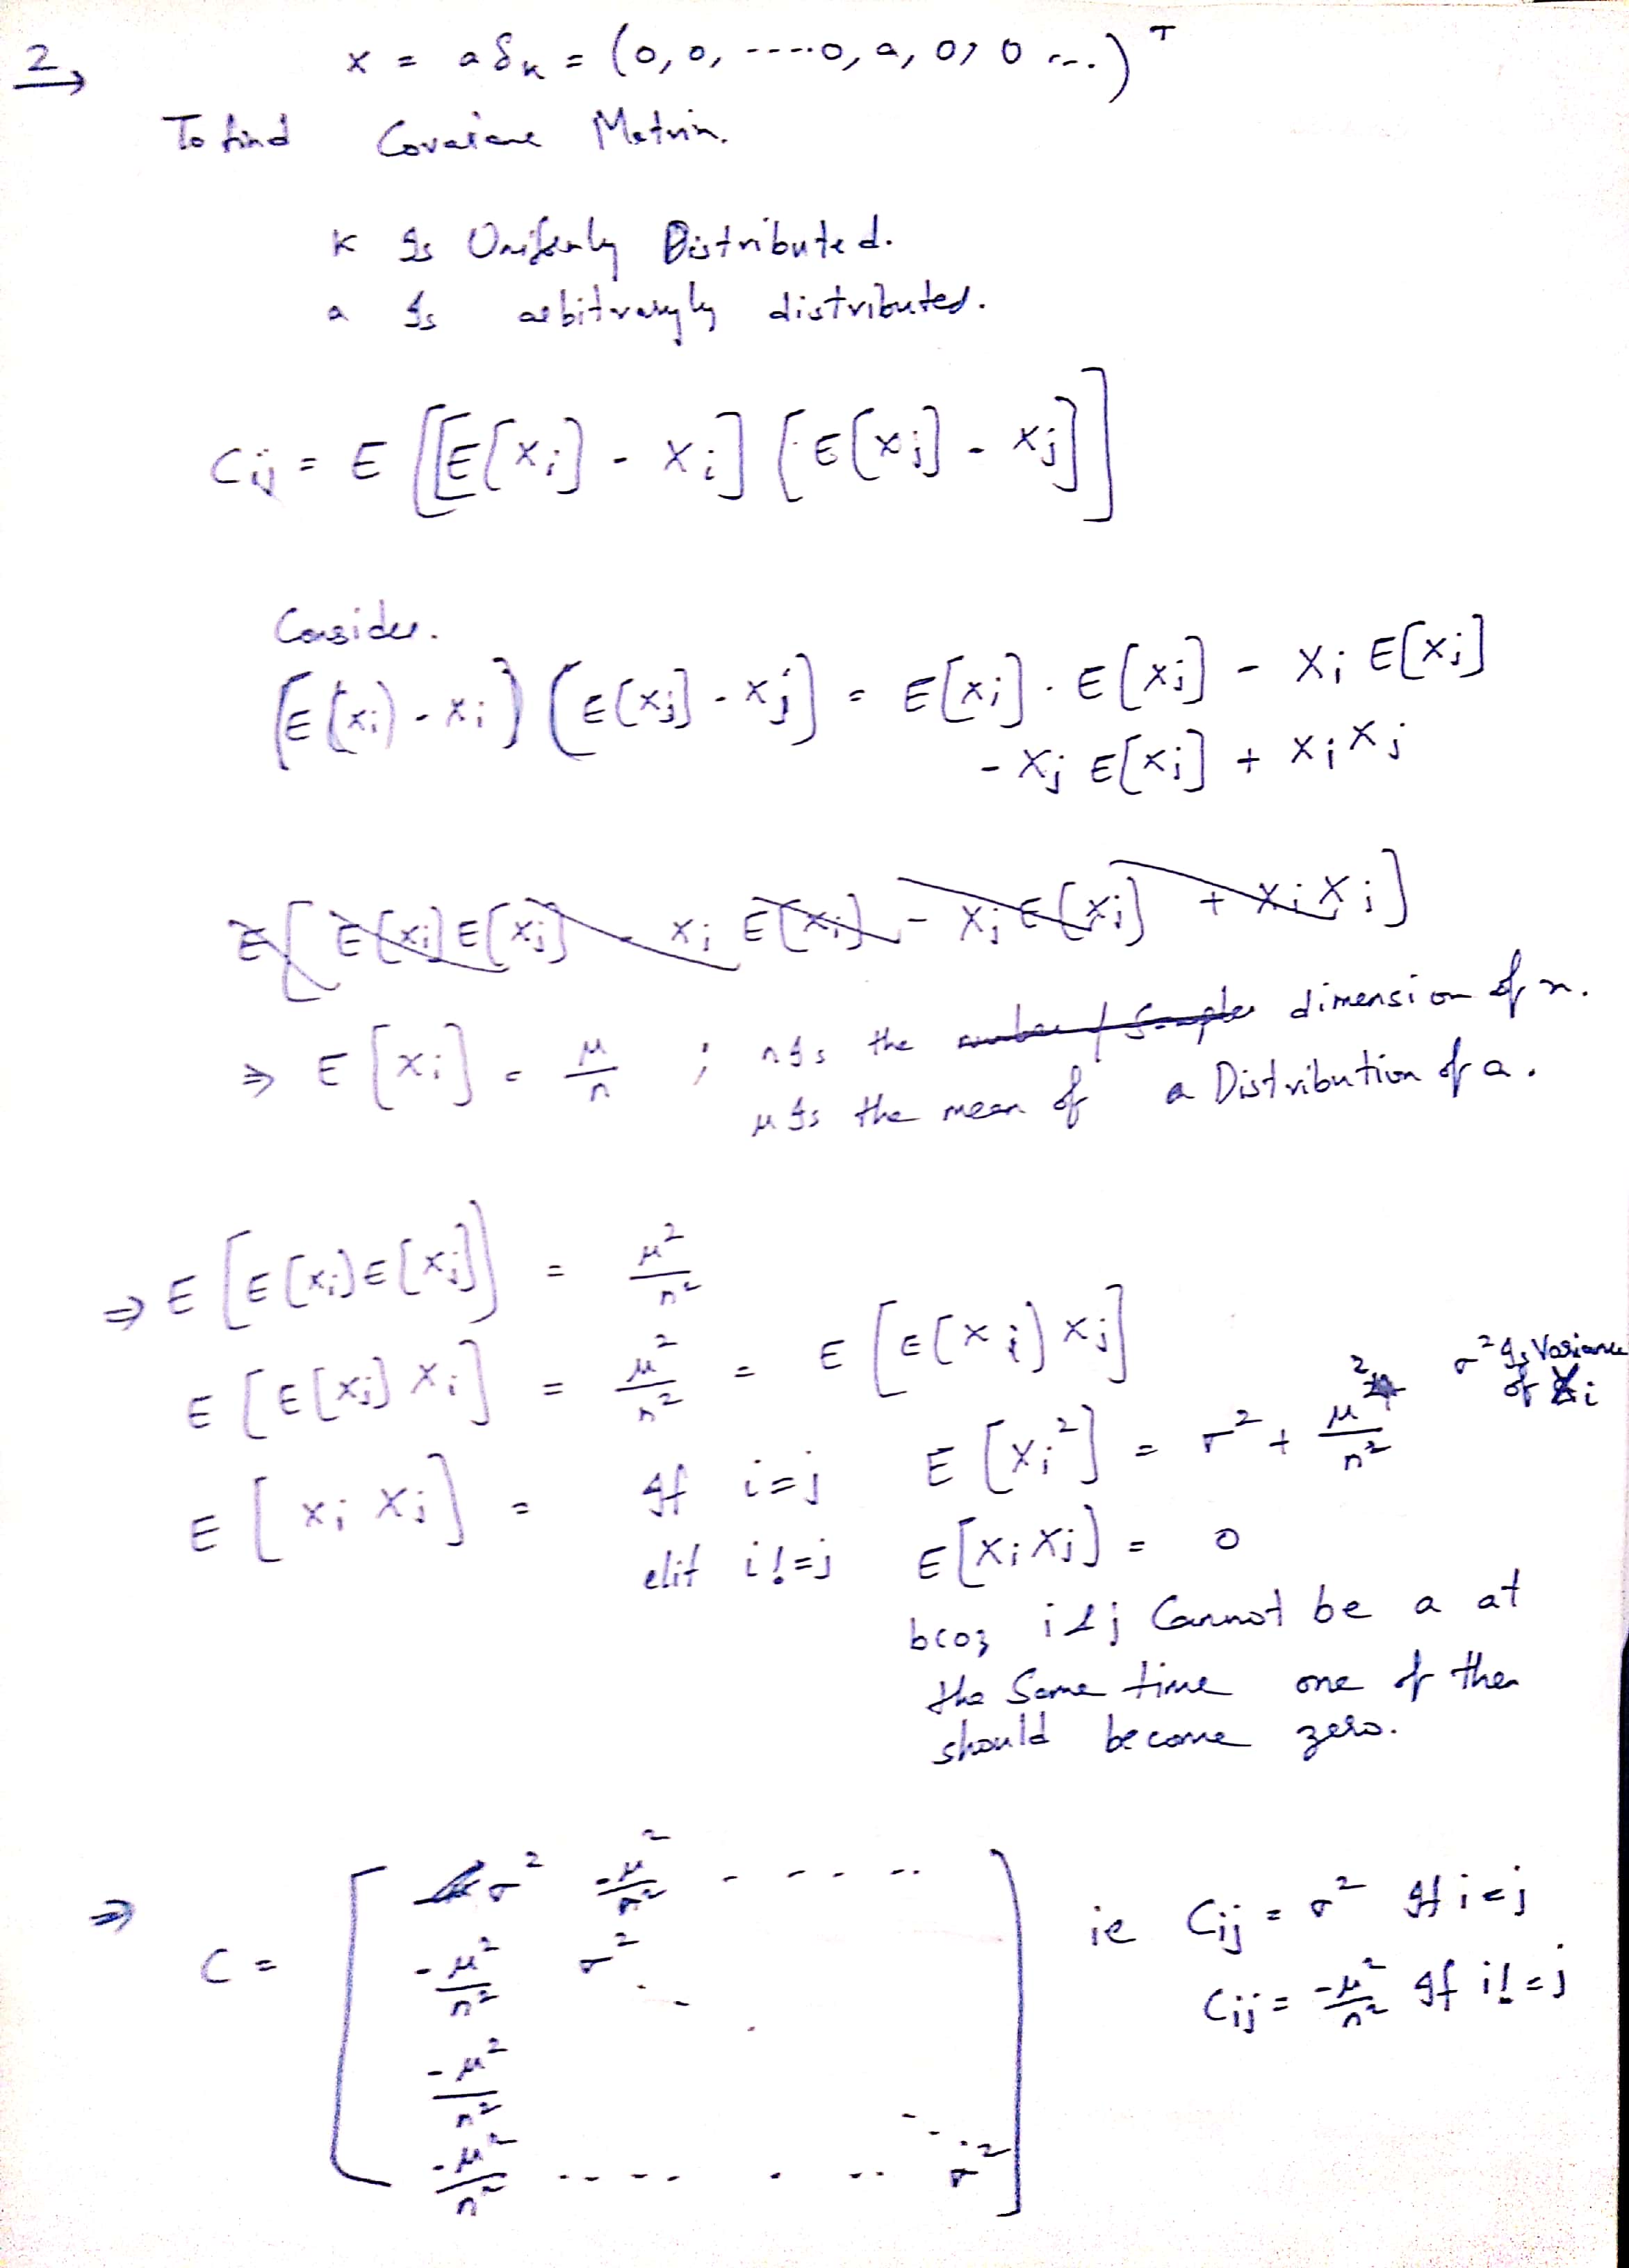 2
x = a δ_k = (0, 0, ----0, a, 0, 0 ...)^T
To find Covariance Matrix.
k Is Uniformly Distributed.
a Is arbitraryly distributed.
C_ij = E [[E[x_i] - x_i] [E[x_j] - x_j]]
Consider.
(E[x_i] - x_i) (E[x_j] - x_j) = E[x_i] . E[x_j] - x_i E[x_j]
- x_j E[x_i] + x_i x_j
E[E[x_i] E[x_j] - x_i E[x_j] - x_j E[x_i] + x_i x_j]
⇒ E[x_i] = μ/n ; n Is the number of samples dimension of x.
μ Is the mean of a Distribution of a.
⇒ E[E[x_i] E[x_j]] = μ²/n²
E[E[x_j] x_i] = μ²/n² = E[E[x_i] x_j]
σ² Is Variance of X_i
E[x_i x_j] = If i=j E[x_i²] = σ² + μ²/n²
elif i!=j E[x_i x_j] = 0
bcoz i & j Cannot be a at
the Same time one of them
should become zero.
⇒ C = [ σ² -μ²/n² - - - ..
-μ²/n² σ² . .
-μ²/n²
-μ²/n² .. - - . .. σ² ]
ie C_ij = σ² If i=j
C_ij = -μ²/n² If i!=j